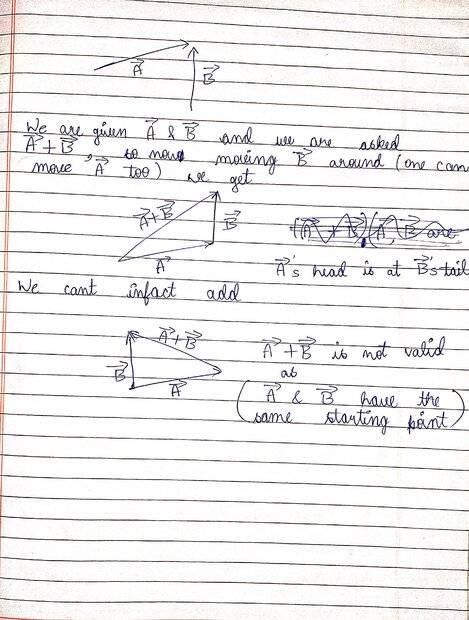 A⃗
B⃗
We are given A⃗ & B⃗ and we are asked
A⃗ + B⃗ so now moving B⃗ around (one can
move 'A⃗ too) we get
A⃗+B⃗
B⃗
A⃗
A⃗'s head is at B⃗'s tail
We cant infact add
A⃗+B⃗
B⃗
A⃗
A⃗ + B⃗ is not valid
as
(A⃗ & B⃗ have the
same starting point)